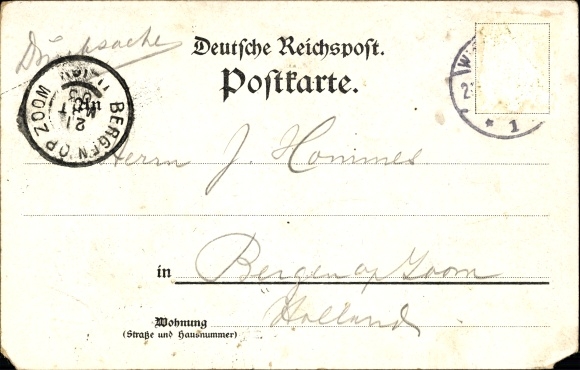 Drucksache
Deutsche Reichspost.
Postkarte.
BERGEN OP ZOOM
* 1
Herrn J. Hommes
in Bergen op Zoom
Wohnung Holland
(Straße und Hausnummer)